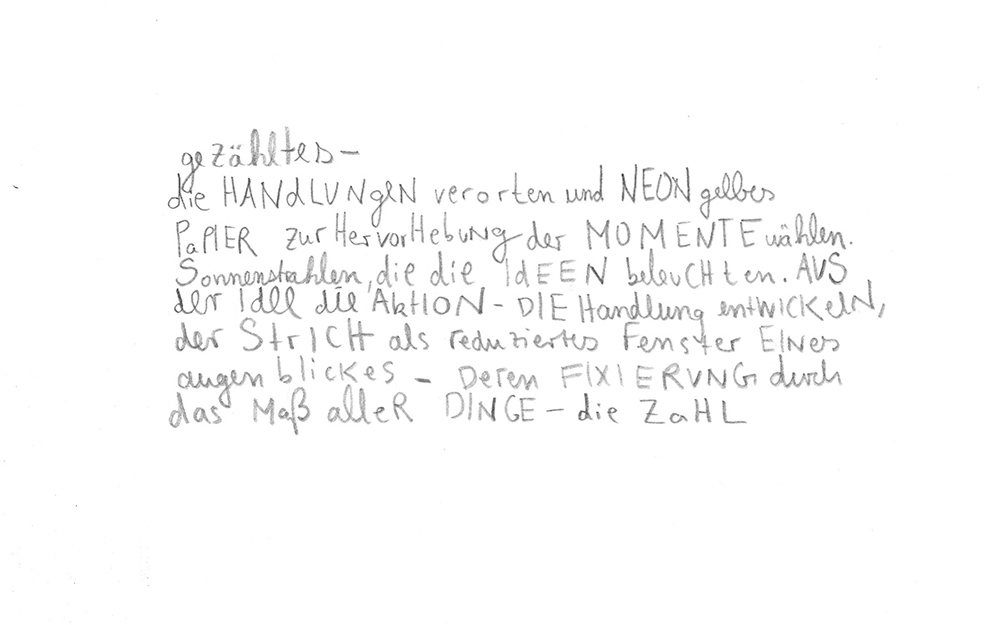 gezähltes –
die HANdLUNgeN verorten und NEON gelbes
PaPIER zur HervorHebuNg der MOMENTE wählen.
Sonnenstrahlen, die die IdEEN beleuCHten. AUS
der Idee die AktION – DIE Handlung entwICKelN,
der StrICH als reduziertes Fenster EINes
augenblickes – Deren FIXIERUNG durch
das Maß alleR DINGE – die ZaHL